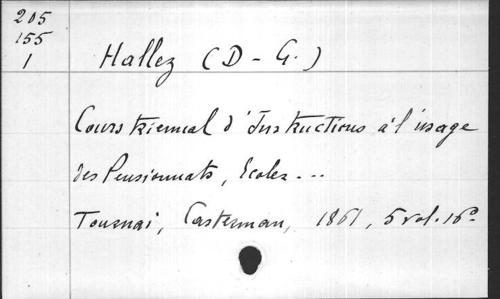 205
155
1
Hallez (D - G.)
Cours triennal d'Instructions à l'usage
des Pensionnats, Ecoles ...
Tournai, Casterman, 1861, 5 vol. 16º